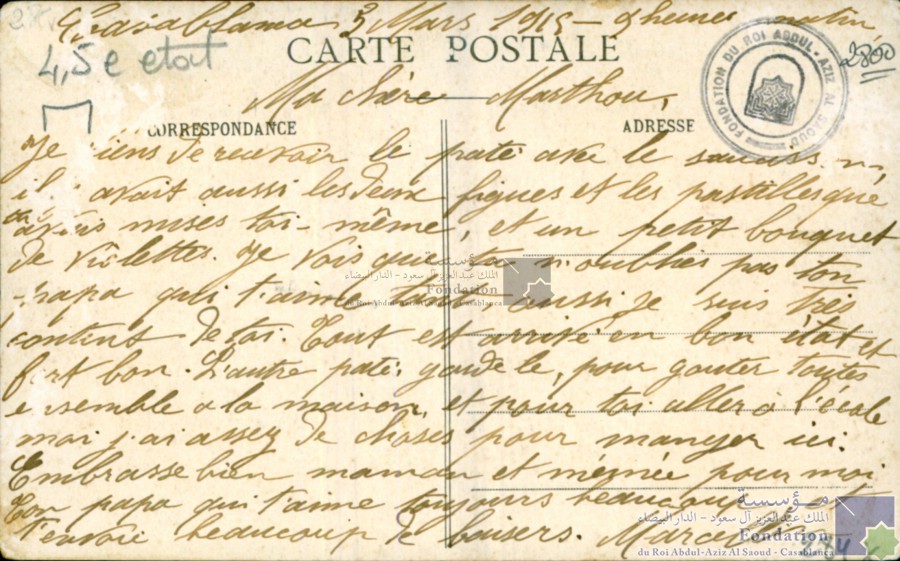 Casablanca 3 Mars 1915 - 2 heures matin
2800
CARTE POSTALE
4,5 e etat
FONDATION DU ROI ABDUL-AZIZ AL SAOUD
Ma chère Marthou,
CORRESPONDANCE
ADRESSE
Je viens de recevoir le pate avec le
il y avait aussi les deux figues et les pastilles que
tu avais mises toi-même, et un petit bouquet
de violettes. Je vois que tu n'oublies pas ton
papa qui t'aime aussi je suis très
content de toi. Tout est arrivé en bon état et
fort bon. L'autre pate, garde le, pour gouter toutes
ensemble a la maison, et pour toi aller à l'école
moi j'ai assez de choses pour manger ici.
Embrasse bien maman et mémée pour moi.
Ton papa qui t'aime toujours beaucoup et
t'envoie beaucoup de baisers. Marcel
مؤسسة
الملك عبد العزيز آل سعود - الدار البيضاء
Fondation
du Roi Abdul-Aziz Al Saoud - Casablanca
مؤسسة
الملك عبد العزيز آل سعود - الدار البيضاء
Fondation
du Roi Abdul-Aziz Al Saoud - Casablanca